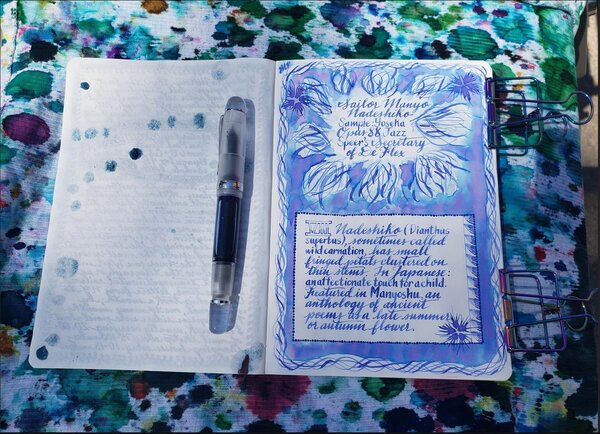 Sailor Manyo
Nadeshiko
Sample: Yoseka
Opus 88 Jazz
Speer's Secretary
of De Flex
Nadeshiko (Dianthus
superbus), sometimes called
wild carnation, has small
fringed petals clustered on
thin stems. In Japanese:
an affectionate touch for a child.
Featured in Manyoshu, an
anthology of ancient
poems as a late summer
or autumn flower.